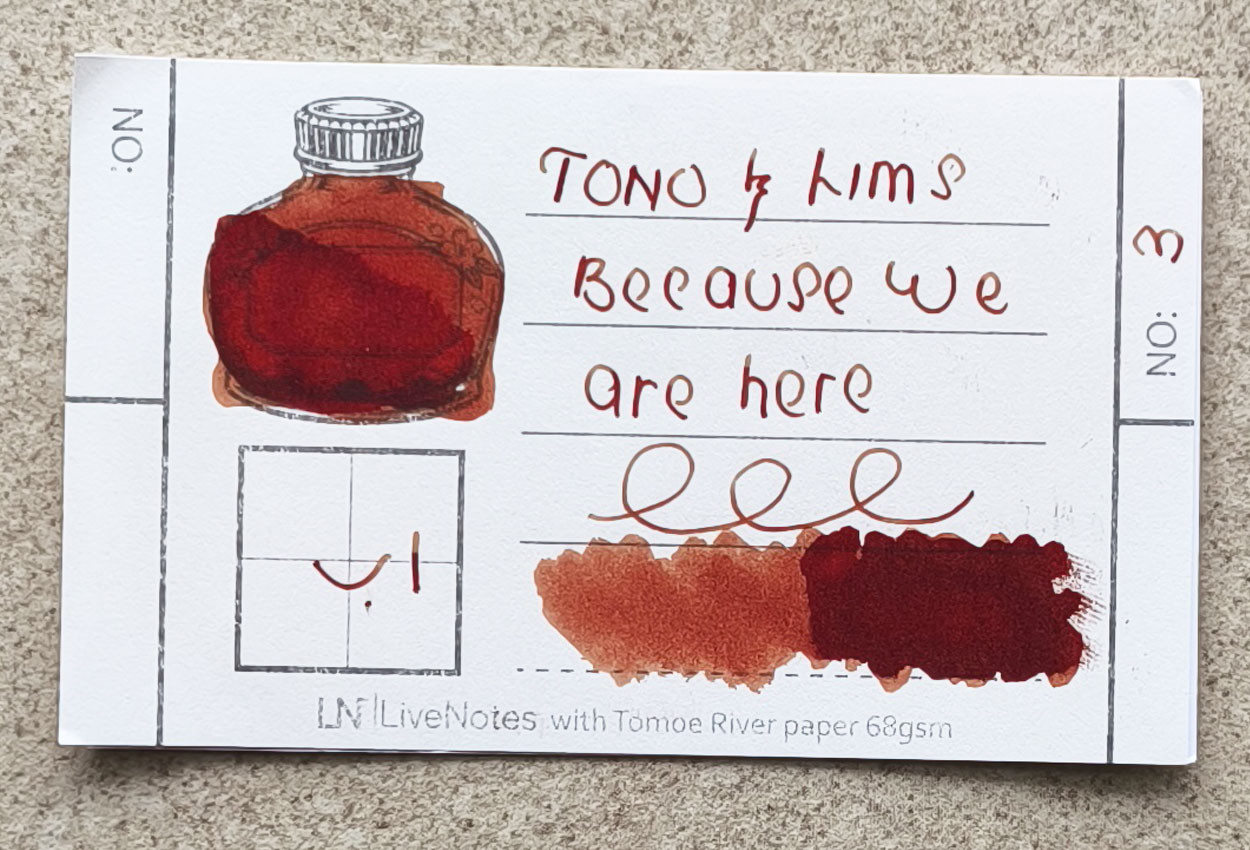 NO:
TONO & LIMS
Because we
are here
NO: 3
با
LN|LiveNotes with Tomoe River paper 68gsm